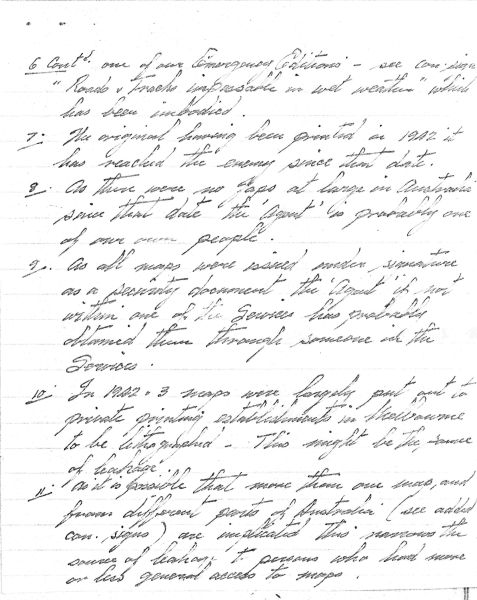 6 Contd. one of our Emergency Editions - see con. sign
"Roads & Tracks impassable in wet weather" which
has been imbodied.
7. The original having been printed in 1942 it
has reached the enemy since that date.
8. As there were no Japs at large in Australia
since that date the 'Agent' is probably one
of our own people.
9. As all maps were issued under signature
as a security document the 'Agent' if not
within one of the Services has probably
obtained them through someone in the
Services.
10. In 1942-3 maps were largely put out to
private printing establishments in Melbourne
to be lithographed - This might be the source
of leakage.
11. As it is possible that more than one map, and
from different parts of Australia (see added
con. signs) are implicated this narrows the
source of leakage to persons who had more
or less general access to maps.